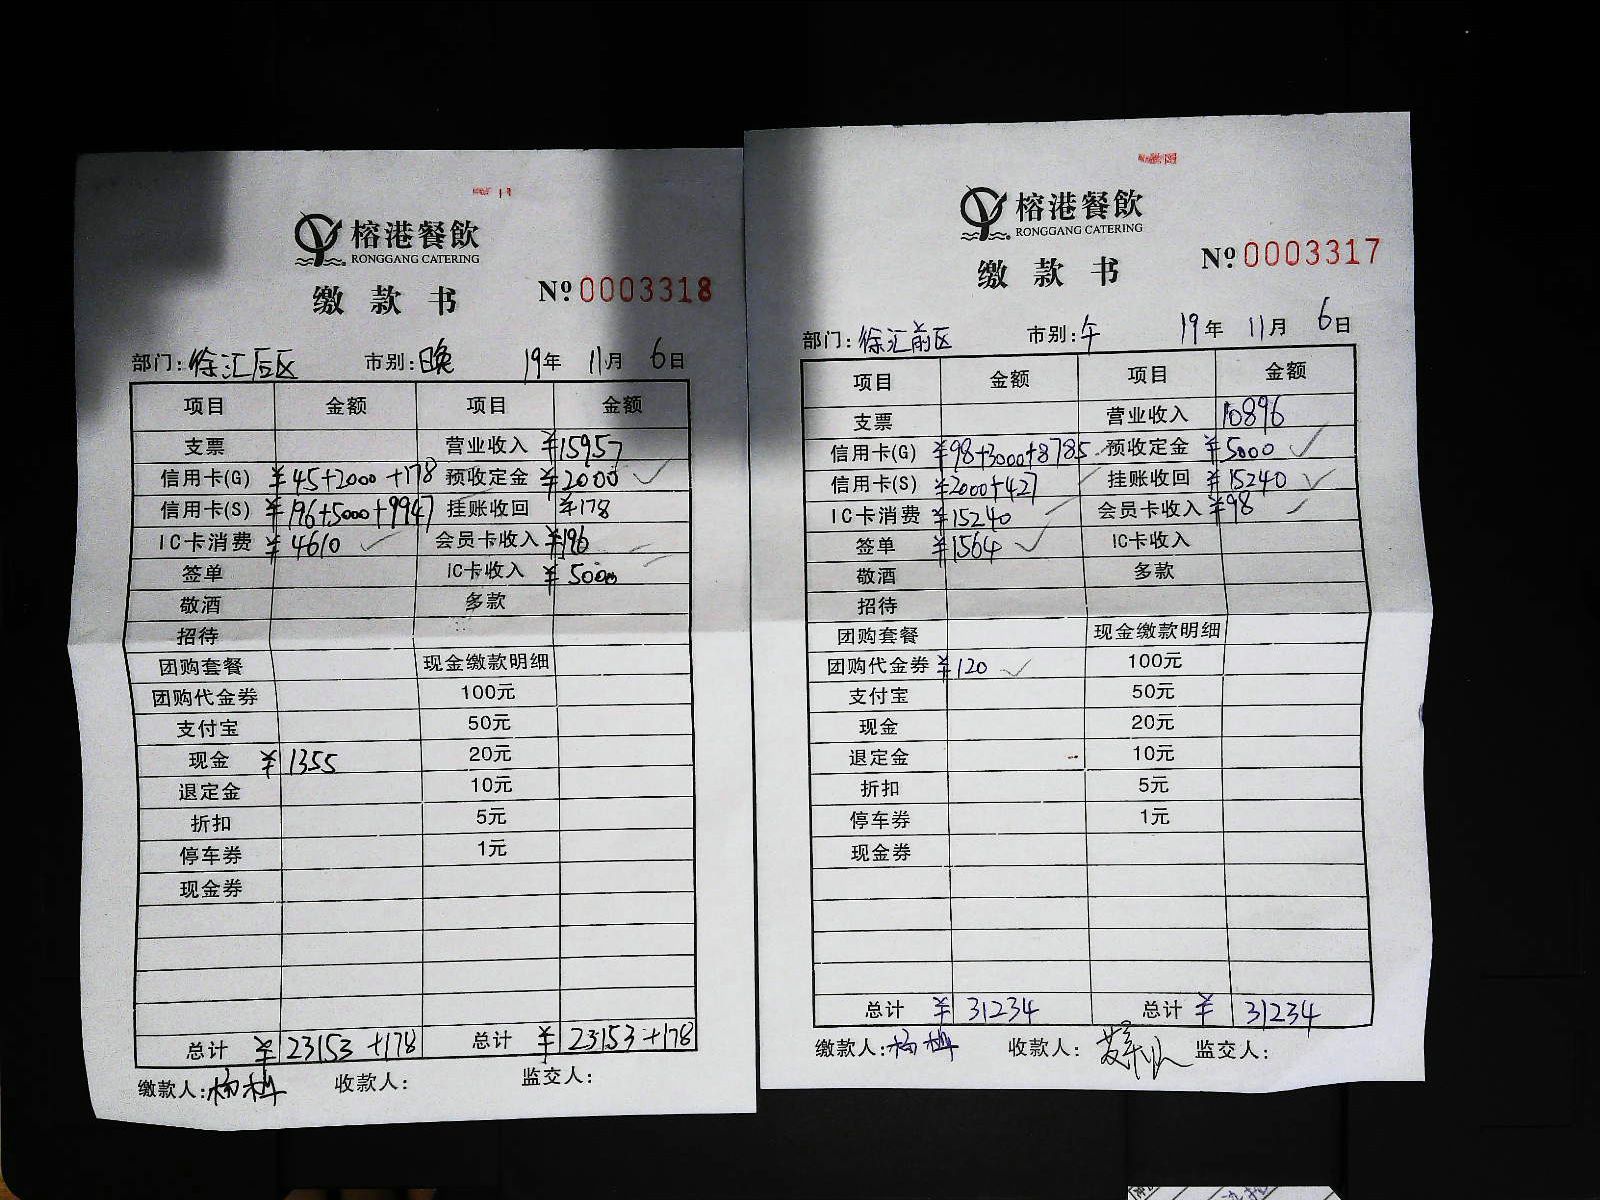 榕港餐飲
RONGGANG CATERING
缴款书
Nº 0003318
部门:徐汇后区 市别:晚 19年 11月 6日
项目 金额 项目 金额
支票 营业收入 ¥15957
信用卡(G) ¥45+2000+178 预收定金 ¥2000
信用卡(S) ¥196+5000+9947 挂账收回 ¥178
IC卡消费 ¥4610 会员卡收入 ¥196
签单 IC卡收入 ¥5000
敬酒 多款
招待
团购套餐 现金缴款明细
团购代金券 100元
支付宝 50元
现金 ¥1355 20元
退定金 10元
折扣 5元
停车券 1元
现金券
总计 ¥23153+178 总计 ¥23153+178
缴款人: 收款人: 监交人:
榕港餐飲
RONGGANG CATERING
缴款书
Nº 0003317
部门:徐汇前区 市别:午 19年 11月 6日
项目 金额 项目 金额
支票 营业收入 10896
信用卡(G) ¥98+3000+8785 预收定金 ¥5000
信用卡(S) ¥2000+427 挂账收回 ¥15240
IC卡消费 ¥15240 会员卡收入 ¥98
签单 ¥1564 IC卡收入
敬酒 多款
招待
团购套餐 现金缴款明细
团购代金券 ¥120 100元
支付宝 50元
现金 20元
退定金 10元
折扣 5元
停车券 1元
现金券
总计 ¥31234 总计 ¥31234
缴款人: 收款人: 监交人: